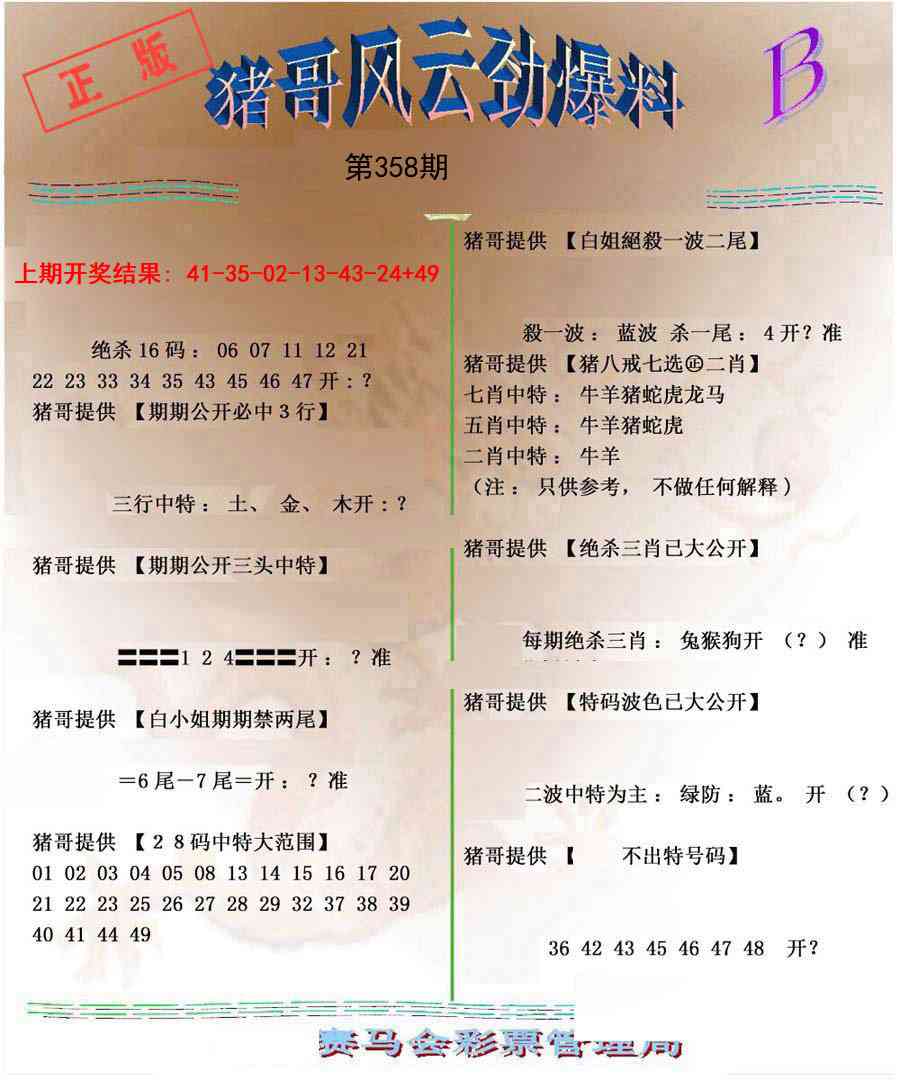 正版
猪哥风云劲爆料
B
第358期
上期开奖结果: 41-35-02-13-43-24+49
绝杀16码： 06 07 11 12 21
22 23 33 34 35 43 45 46 47开:？
猪哥提供 【期期公开必中3行】
三行中特： 土、 金、 木开:？
猪哥提供 【期期公开三头中特】
〓〓〓1 2 4〓〓〓开： ？准
猪哥提供 【白小姐期期禁两尾】
＝6尾－7尾＝开： ？准
猪哥提供 【２８码中特大范围】
01 02 03 04 05 08 13 14 15 16 17 20
21 22 23 25 26 27 28 29 32 37 38 39
40 41 44 49
猪哥提供 【白姐絕殺一波二尾】
殺一波： 蓝波 杀一尾： 4开？准
猪哥提供 【猪八戒七选㊣二肖】
七肖中特： 牛羊猪蛇虎龙马
五肖中特： 牛羊猪蛇虎
二肖中特： 牛羊
（注： 只供参考， 不做任何解释)
猪哥提供 【绝杀三肖已大公开】
每期绝杀三肖： 兔猴狗开 （？） 准
猪哥提供 【特码波色已大公开】
二波中特为主： 绿防： 蓝。 开 （？）
猪哥提供 【 不出特号码】
36 42 43 45 46 47 48 开?
赛马会彩票管理局